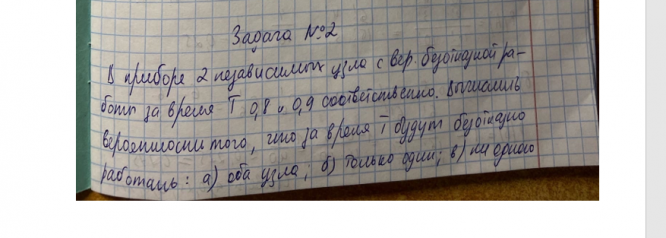 Задача №2
В приборе 2 независимых узла с вер. безотказной ра-
боты за время T 0,8 и 0,9 соответственно. Вычислить
вероятности того, что за время T будут безотказно
работать: а) оба узла; б) только один; в) ни одного